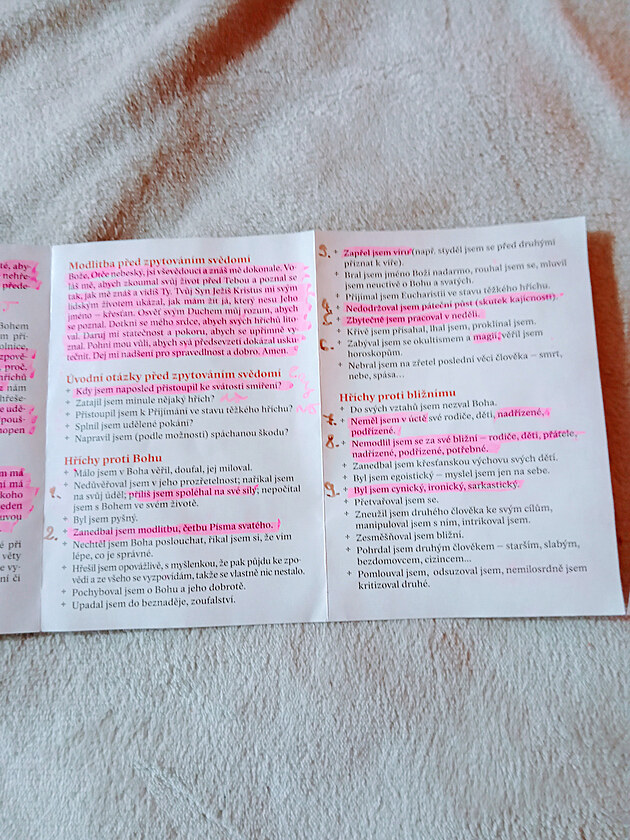 té, aby-
nehře-
přede-
Bohem
m při-
olnice,
zpově-
, proč.
hříchů
z nám
hřeše-
e udě-
pouš-
nopen
m má
ní má
koho
eden
uvou
é při
věty
e vy-
ní či
Modlitba před zpytováním svědomí
Bože, Otče nebeský, jsi vševědoucí a znáš mě dokonale. Vo-
láš mě, abych zkoumal svůj život před Tebou a poznal se
tak, jak mě znáš a vidíš Ty. Tvůj Syn Ježíš Kristus mi svým
lidským životem ukázal, jak mám žít já, který nesu Jeho
jméno – křesťan. Osvěť svým Duchem můj rozum, abych
se poznal. Dotkni se mého srdce, abych svých hříchů lito-
val. Daruj mi statečnost a pokoru, abych se upřímně vy-
znal. Pohni mou vůlí, abych svá předsevzetí dokázal usku-
tečnit. Dej mi nadšení pro spravedlnost a dobro. Amen.
Úvodní otázky před zpytováním svědomí
+ Kdy jsem naposled přistoupil ke svátosti smíření?
+ Zatajil jsem minule nějaký hřích?
+ Přistoupil jsem k Přijímání ve stavu těžkého hříchu?
+ Splnil jsem udělené pokání?
+ Napravil jsem (podle možností) spáchanou škodu?
Hříchy proti Bohu
+ Málo jsem v Boha věřil, doufal, jej miloval.
1. + Nedůvěřoval jsem v jeho prozřetelnost; naříkal jsem
na svůj úděl; příliš jsem spoléhal na své síly, nepočítal
jsem s Bohem ve svém životě.
+ Byl jsem pyšný.
2. + Zanedbal jsem modlitbu, četbu Písma svatého.
+ Nechtěl jsem Boha poslouchat, říkal jsem si, že vím
lépe, co je správné.
+ Hřešil jsem opovážlivě, s myšlenkou, že pak půjdu ke zpo-
vědi a ze všeho se vyzpovídám, takže se vlastně nic nestalo.
+ Pochyboval jsem o Bohu a jeho dobrotě.
+ Upadal jsem do beznaděje, zoufalství.
3. + Zapřel jsem víru (např. styděl jsem se před druhými
přiznat k víře).
+ Bral jsem jméno Boží nadarmo, rouhal jsem se, mluvil
jsem neuctivě o Bohu a svatých.
+ Přijímal jsem Eucharistii ve stavu těžkého hříchu.
4. + Nedodržoval jsem páteční půst (skutek kajícnosti).
5. + Zbytečně jsem pracoval v neděli.
+ Křivě jsem přísahal, lhal jsem, proklínal jsem.
6. + Zabýval jsem se okultismem a magií, věřil jsem
horoskopům.
+ Nebral jsem na zřetel poslední věci člověka – smrt,
nebe, spása…
Hříchy proti bližnímu
+ Do svých vztahů jsem nezval Boha.
7. + Neměl jsem v úctě své rodiče, děti, nadřízené,
podřízené.
8. + Nemodlil jsem se za své bližní – rodiče, děti, přátele,
nadřízené, podřízené, potřebné.
+ Zanedbal jsem křesťanskou výchovu svých dětí.
+ Byl jsem egoistický – myslel jsem jen na sebe.
9. + Byl jsem cynický, ironický, sarkastický.
+ Přetvařoval jsem se.
+ Zneužil jsem druhého člověka ke svým cílům,
manipuloval jsem s ním, intrikoval jsem.
+ Zesměšňoval jsem bližní.
+ Pohrdal jsem druhým člověkem – starším, slabým,
bezdomovcem, cizincem…
+ Pomlouval jsem, odsuzoval jsem, nemilosrdně jsem
kritizoval druhé.